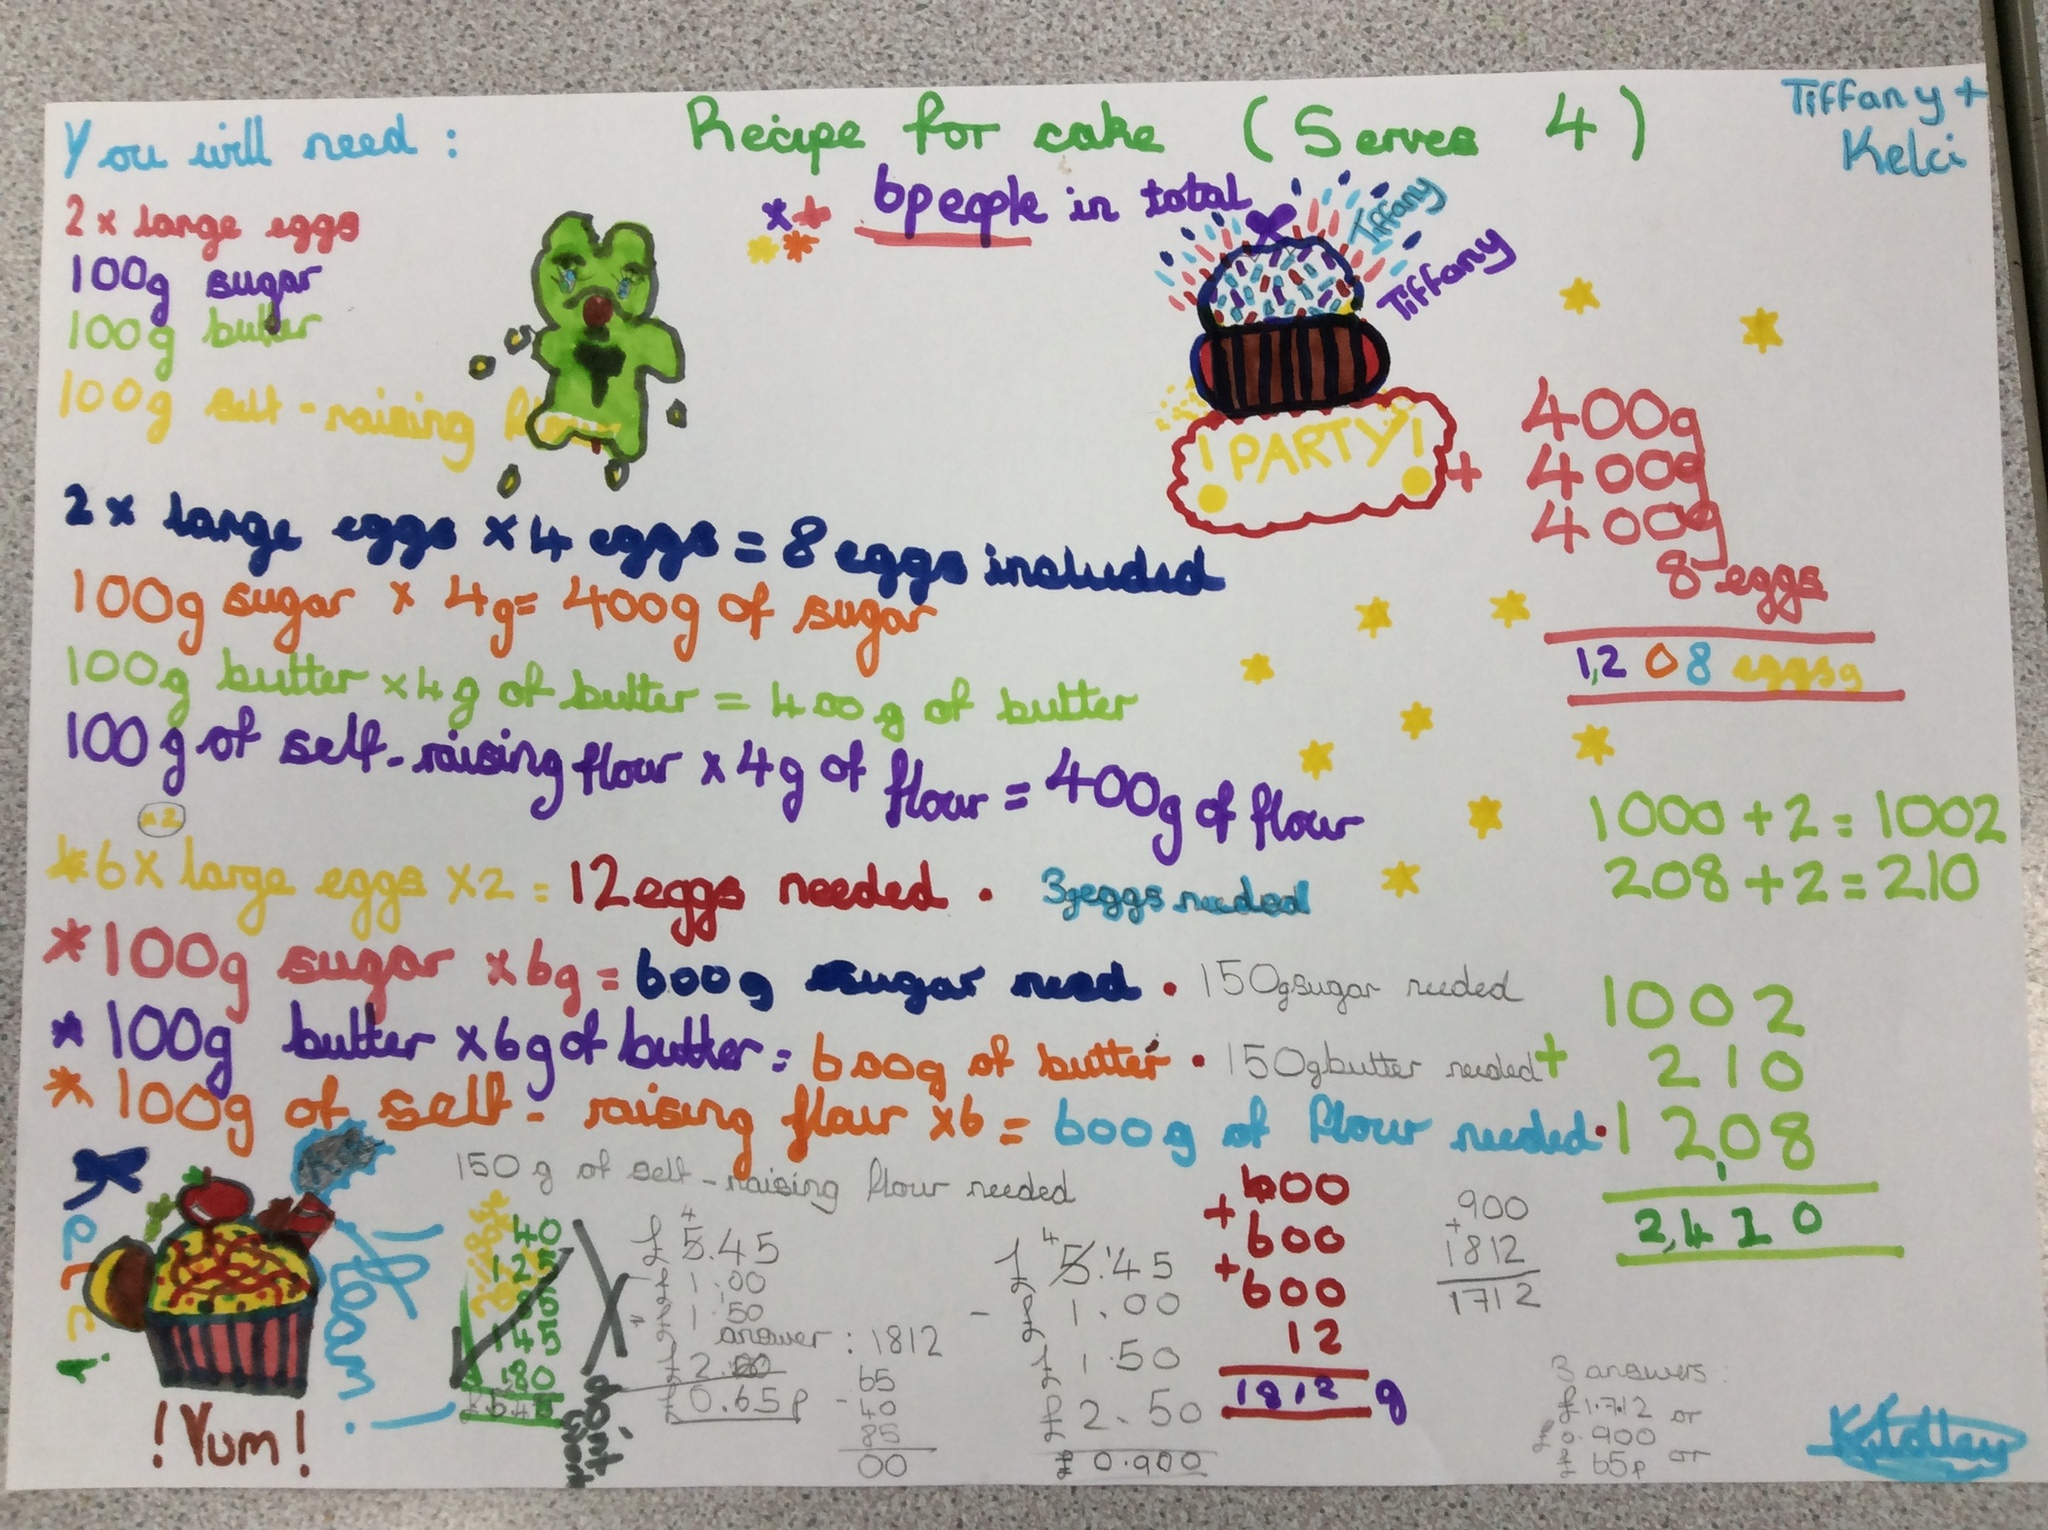 You will need :
Recipe for cake (Serves 4)
Tiffany +
Kelci
6 people in total
2 x large eggs
100g sugar
100g butter
100g self-raising flour
Tiffany
Tiffany
! PARTY !
400g
+ 400g
400g
8 eggs
1,208 eggsg
2 x large eggs x 4 eggs = 8 eggs included
100g sugar x 4g= 400g of sugar
100g butter x4g of butter = 400g of butter
100g of self-raising flour x 4g of flour = 400g of flour
x2
1000 + 2 = 1002
208 + 2 = 210
*6x large eggs x2 = 12 eggs needed . 3geggs needed
*100g sugar x6g = 600g sugar need . 150gsugar needed
* 100g butter x6g of butter = 600g of butter . 150gbutter needed
* 100g of self-raising flour x6 = 600g of flour needed.
150g of self-raising flour needed
1002
+ 210
1208
2,410
600
+ 600
+ 600
12
1812 g
900
+
1812
1712
40
125
145
180
don't
£5.45
4
1.00
1.50
£2.50
£0.65p
answer : 1812
65
- 40
85
00
£5.45
4
- £1.00
£1.50
£2.50
£0.900
3 answers:
£1.712 or
£0.900
£ 65p or
Kelci
!Yum!